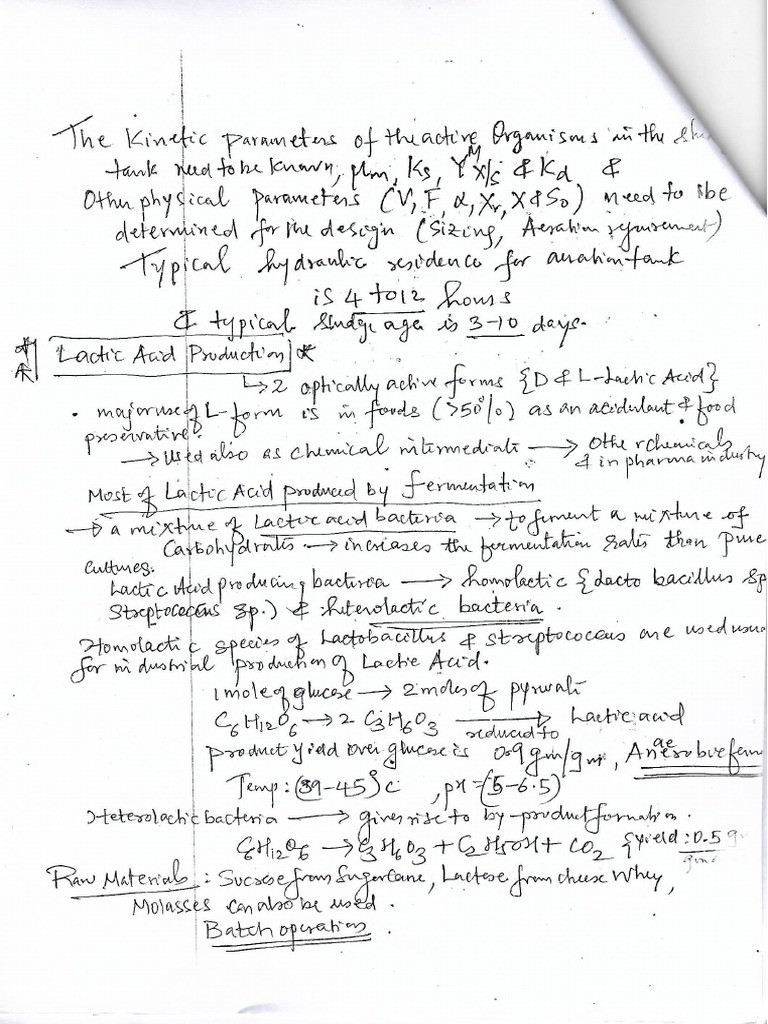 The Kinetic parameters of the active Organisms in the
tank need to be known, μm, Ks, Y^M x/s & Kd &
Other physical parameters (V, F, α, Xr, X & S0) need to be
determined for the design (Sizing, Aeration requirement)
Typical hydraulic residence for aeration tank
is 4 to 12 hours
& typical sludge age is 3-10 days.
Lactic Acid Production *
↳ 2 optically active forms {D & L-Lactic Acid}
• major use of L-form is in foods (>50%) as an acidulant & food
preservative.
→ used also as chemical intermediate → other chemicals
& in pharma industry
Most of Lactic Acid produced by fermentation
→ a mixture of Lactic acid bacteria → to ferment a mixture of
Carbohydrates → increases the fermentation rates than pure
cultures.
Lactic Acid producing bacteria → homolactic {Lacto bacillus sp
Streptococcus sp.) & heterolactic bacteria.
Homolactic species of Lactobacillus & streptococcus are used
for industrial production of Lactic Acid.
1 mole of glucose → 2 moles of pyruvate
C6H12O6 → 2 C3H6O3 → reduced to Lactic acid
product yield over glucose is 0.9 gm/gm, Anaerobic
Temp: (39-45)°c , pH = (5-6.5)
Heterolactic bacteria → gives rise to by-product formation.
C6H12O6 → C3H6O3 + C2H5OH + CO2 {yield: 0.5
Raw Materials: Sucrose from Sugarcane, Lactose from cheese Whey,
Molasses can also be used.
Batch operation.